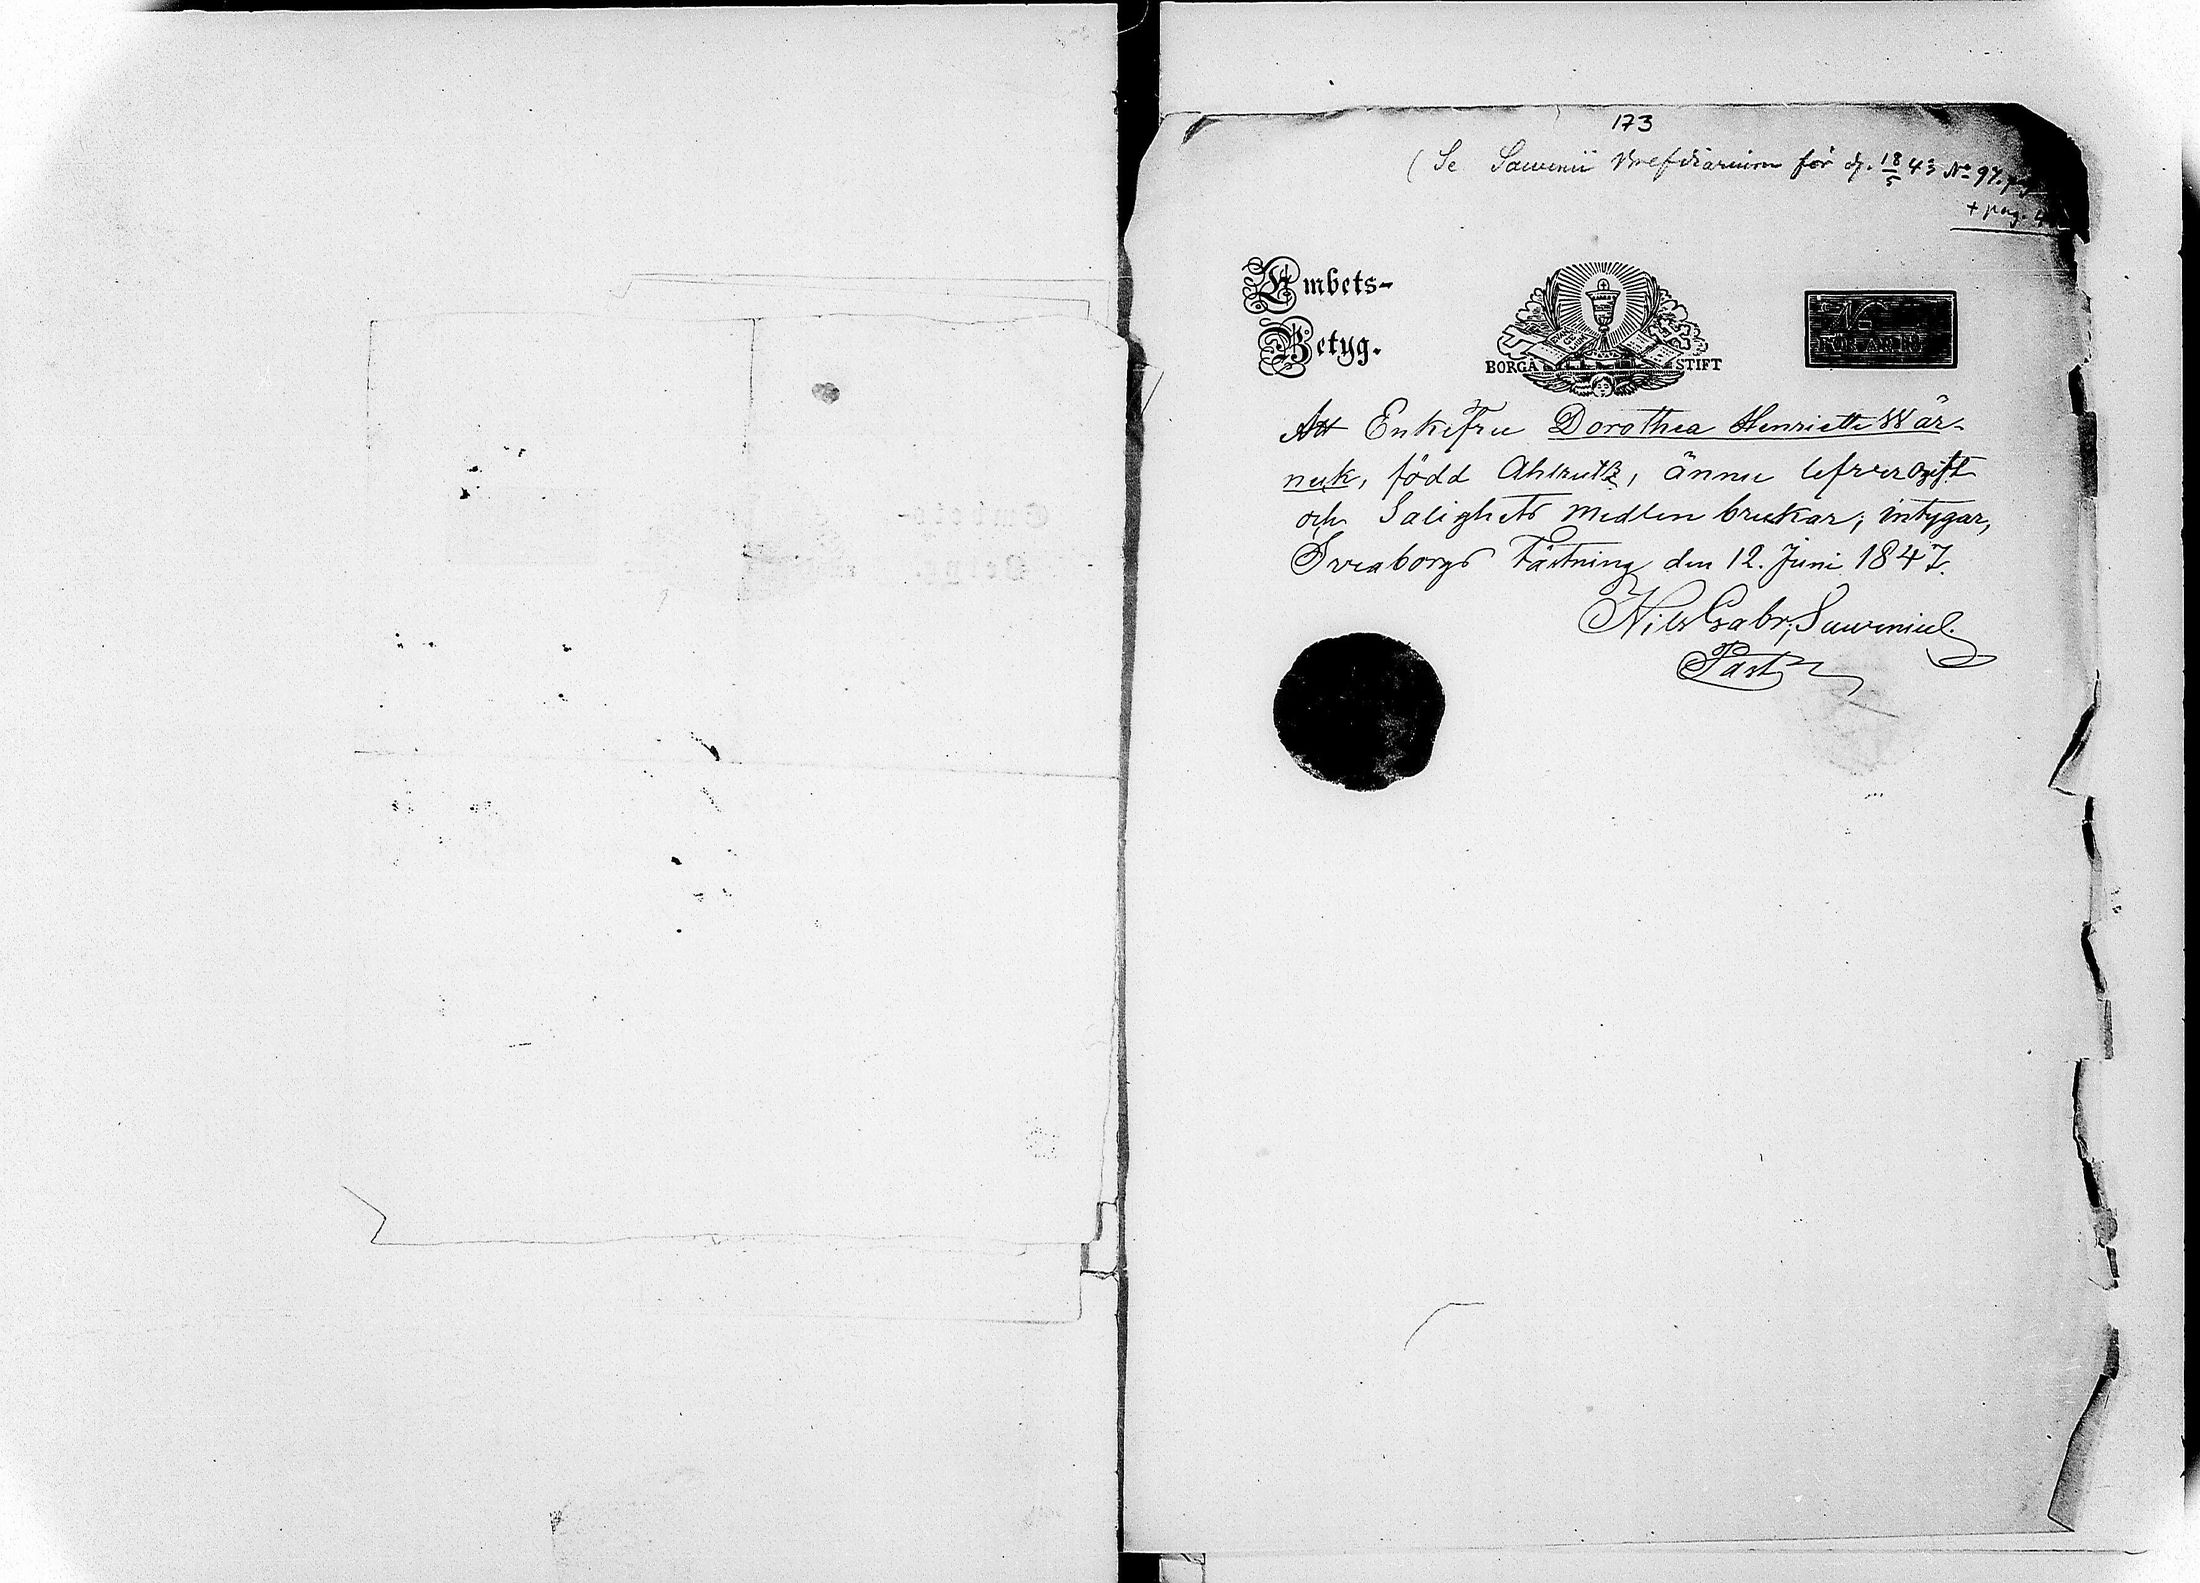 173
(Se Sawenii Brefdiarium för d. 18/5 43 No 97.
+ pag.
Embets-
Betyg.
BORGÅ STIFT
No
FÖR ARK
Att Enkefru Dorothea Henriette Wär-
nuk, född Ahlrutz, ännu lefver ogift
och Salighets medlen brukar, intygar,
Sveaborgs Fästning den 12. Juni 1847.
Nils Gabr. Sawenius.
Past